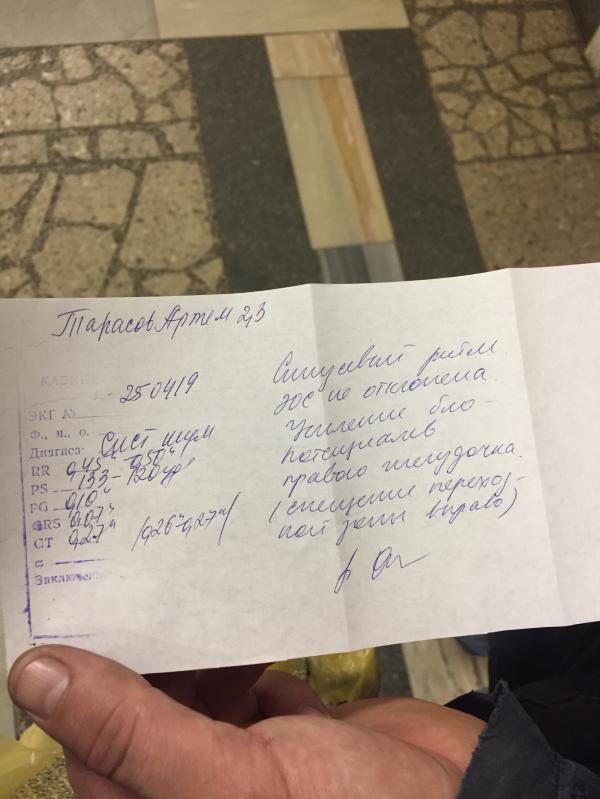 Тарасов Артем 2,3
КАБИН
250419
ЭКГ №
Ф., и., о.
Диагноз: Сист шум
RR 0,45" - 0,50"
PS 133 - 120 уд
PG 0,10"
QRS 0,07"
GT 0,27" /0,26"-0,27"/
с
Заключен
Синусовый ритм.
ЭОС не отклонена.
Усиление био-
потенциалов
правого желудочка.
(смещение переход-
ной зоны вправо)